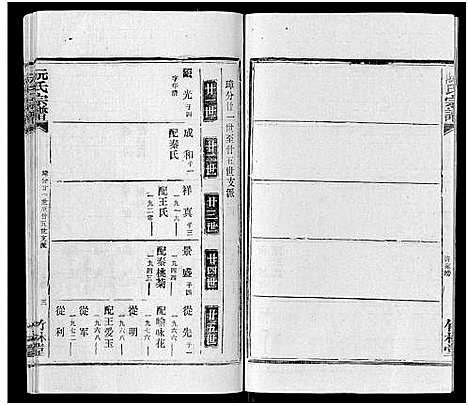 阮氏宗譜
璋分廿一世至廿五世支派
三
竹林堂
璋分廿一世至廿五世支派
廿一世
廿二世
廿三世
廿四世
廿五世
光 子四
字年清
成和 子一
配秦氏
祥真 子三
一九一九
配王氏
一九二零
景盛 子四
一九四四
配秦桃菊
一九四三
從先 子一
一九六七
配喻咏花
一九六六
從明
一九六六
配王愛玉
一九六八
從軍
從利
一九七二
氏宗譜
竹林堂